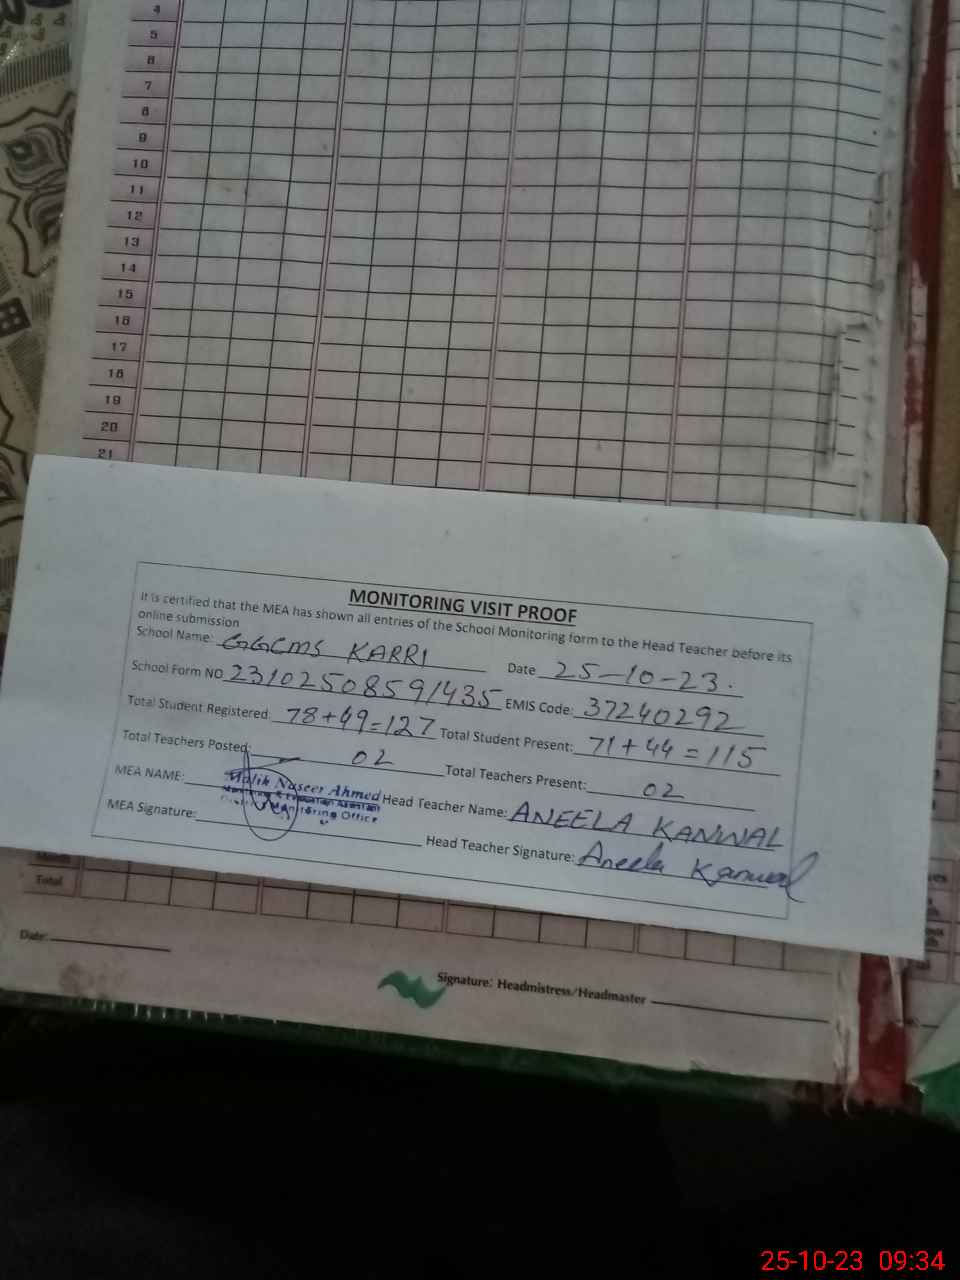 4
5
6
7
8
9
10
11
12
13
14
15
16
17
18
19
20
21
MONITORING VISIT PROOF
It is certified that the MEA has shown all entries of the School Monitoring form to the Head Teacher before its
online submission
School Name: GGCMS KARRI Date 25-10-23.
School Form NO 23102508591435 EMIS Code: 37240292
Total Student Registered: 78+49=127 Total Student Present: 71+44=115
Total Teachers Posted: 02 Total Teachers Present: 02
MEA NAME: Malik Naseer Ahmed Head Teacher Name: ANEELA KANWAL
Monitoring & Evaluation Assistant
Monitoring Office
MEA Signature: Head Teacher Signature: Aneela Kanwal
Total
Date:
Signature: Headmistress/Headmaster
25-10-23 09:34